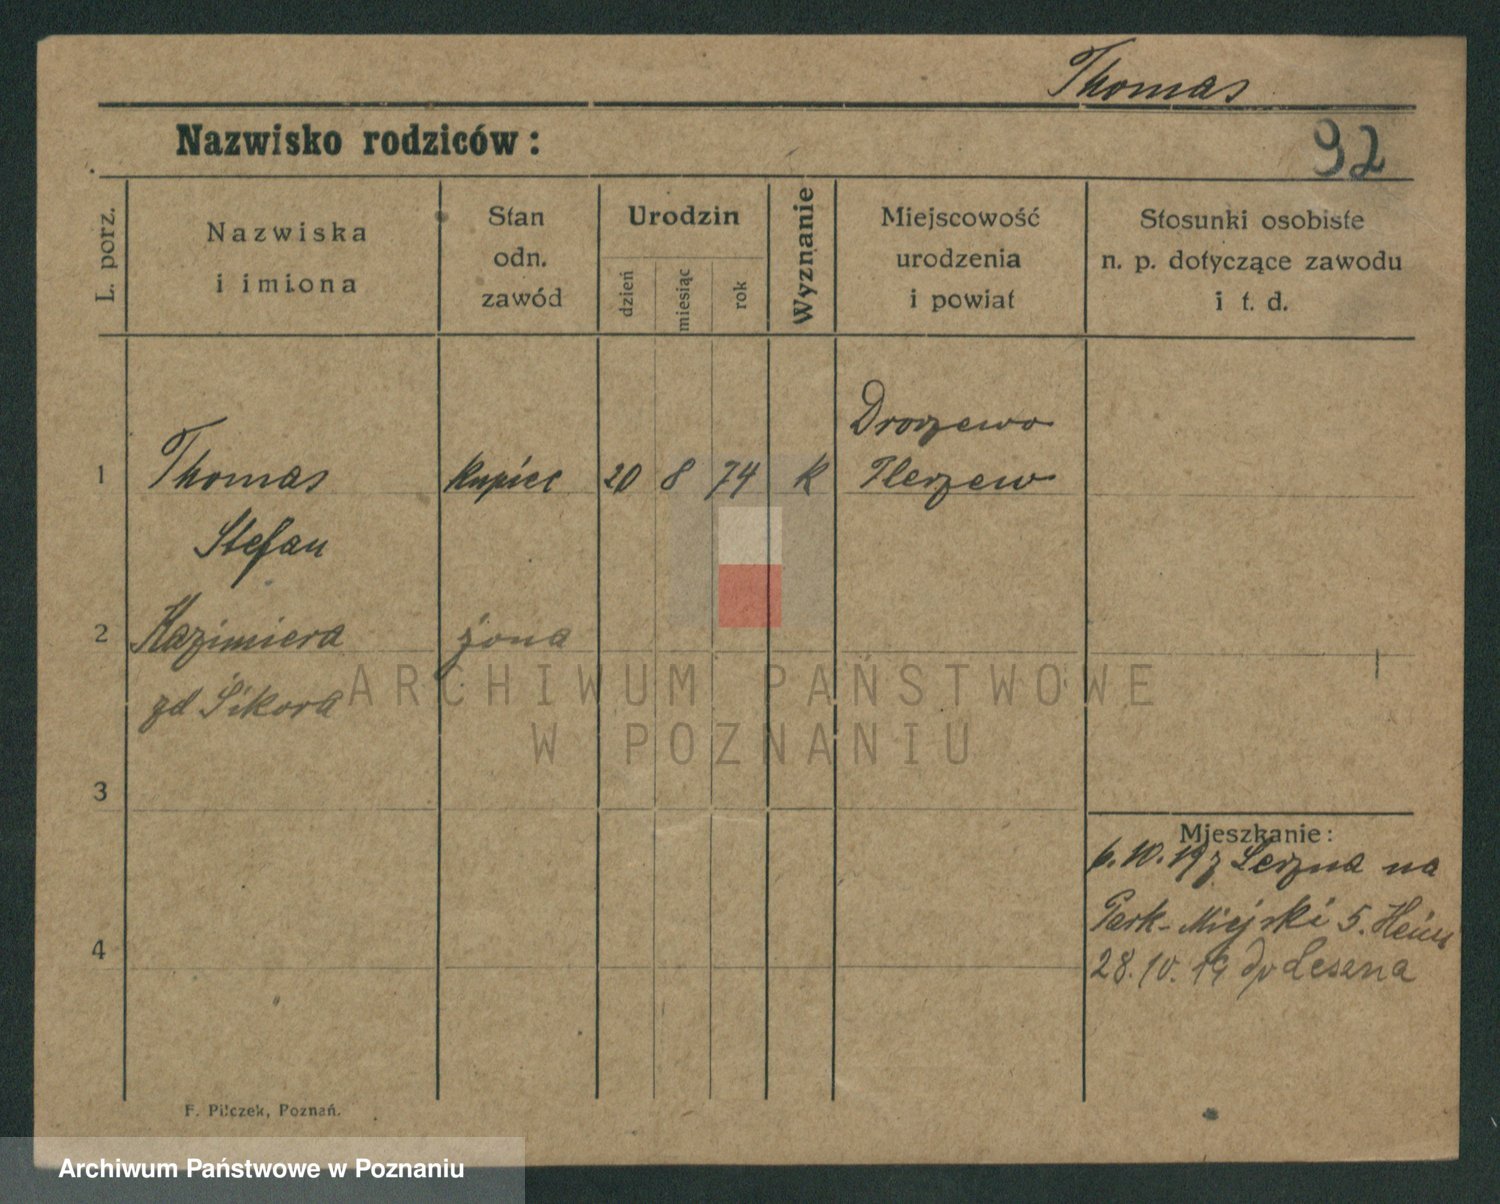 Thomas
Nazwisko rodziców:
92
L. porz.
Nazwiska
i imiona
Stan
odn.
zawód
Urodzin
dzień
miesiąc
rok
Wyznanie
Miejscowość
urodzenia
i powiat
Stosunki osobiste
n. p. dotyczące zawodu
i t. d.
Drorzewo
1 Thomas kupiec 20 8 74 k Plerzew
Stefan
2 Kazimiera żona
zd Sikora
ARCHIWUM PAŃSTWOWE
W POZNANIU
3
Mieszkanie:
10. 19 z Lerzna na
Park-Miejski 5.
4
28. 10. 19 do Leszna
F. Pilczek, Poznań.
Archiwum Państwowe w Poznaniu